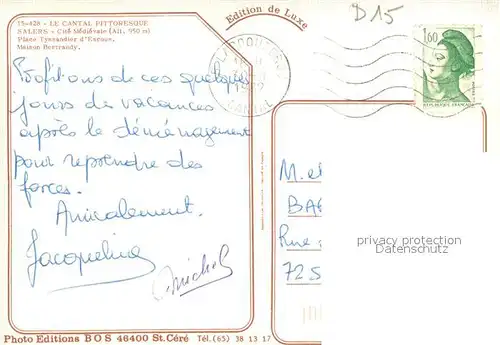 15-428 - LE CANTAL PITTORESQUE
SALERS - Cité Médiévale (Alt. 950 m)
Place Tyssandier d'Escous,
Maison Bertrandy.
Edition de Luxe
D15
1,60
REPUBLIQUE FRANÇAISE
CANTAL
Profitons de ces quelques
jours de vacances
après le déménagement
pour reprendre des
forces.
Amicalement.
Jacqueline
Michel
M. et
BA
Rue
72 S
privacy protection
Datenschutz
Photo Editions BOS 46400 St. Céré Tél. (65) 38 13 17